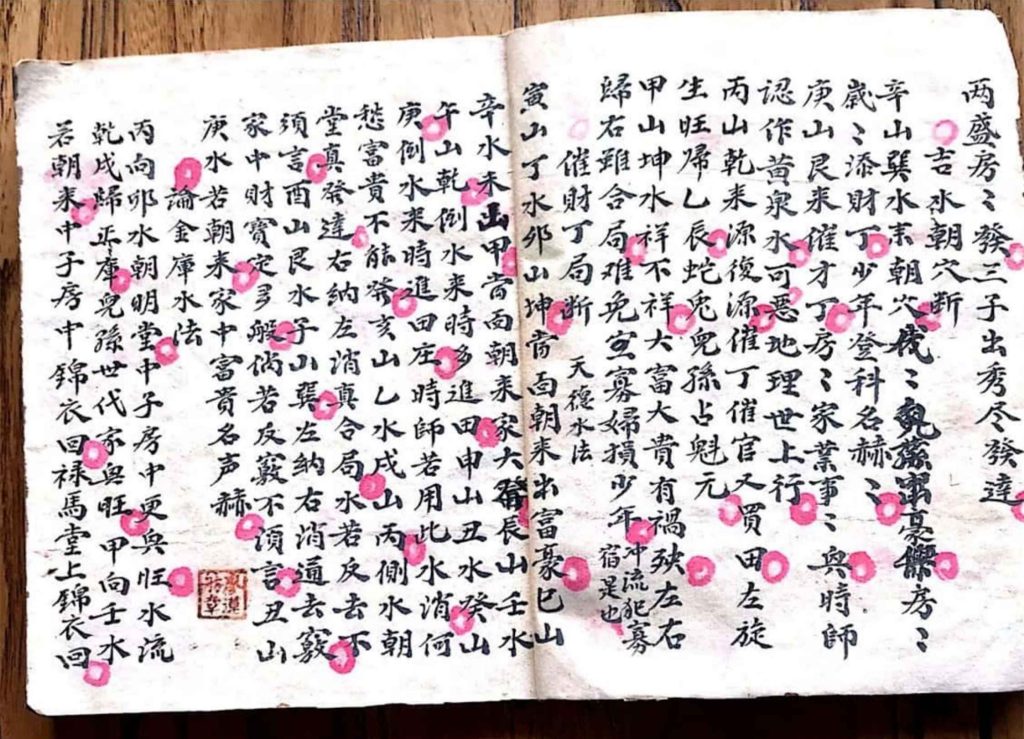 两盛房〻發三子出秀尽發達
吉水朝穴断
辛山巽水来朝穴代〻兒孫出豪傑房〻
歲〻添財丁少年登科名赫〻
庚山艮来催才丁房〻家業事〻興時師
認作黄泉水可惡地理世上行
丙山乾来源復源催丁催官又買田左旋
生旺歸乙辰蛇兎兒孫占魁元
甲山坤水祥不祥大富大貴有禍殃左右
歸右雖合局难免室寡婦損少年冲流犯寡宿是也
催財丁局断 天德水法
寅山丁水卯山坤當面朝来出富豪巳山
辛水未山甲當面朝来家大發辰山壬水
午山乾倒水来時多進田申山丑水癸山
庚倒水来時進田庄時師若用此水消何
愁富貴不能發亥山乙水戍山丙側水朝
堂真發達右納左消真合局水若反去不
須言酉山艮水子山巽左納右消道去竅
家中財寶定多般倘若反竅不須言丑山
庚水若朝来家中富貴名声赫
論金庫水法
丙向卯水朝明堂中子房中更興旺水流
乾戍歸正庫兒孫世代家興旺甲向壬水
若朝来中子房中錦衣回禄馬堂上錦衣回